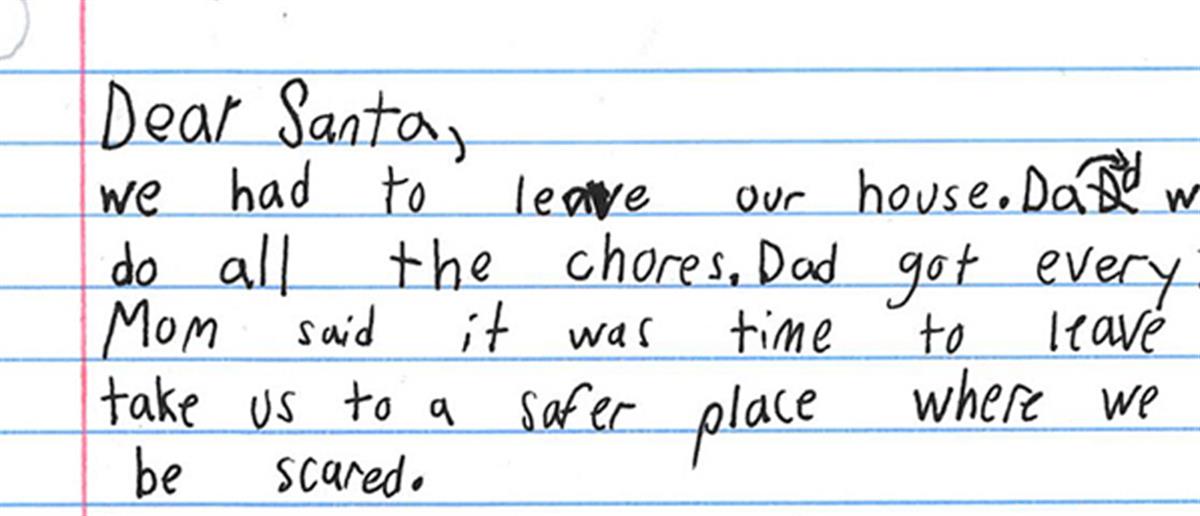 Dear Santa,
we had to leave our house. Dad w
do all the chores. Dad got every
Mom said it was time to leave
take us to a safer place where we
be scared.